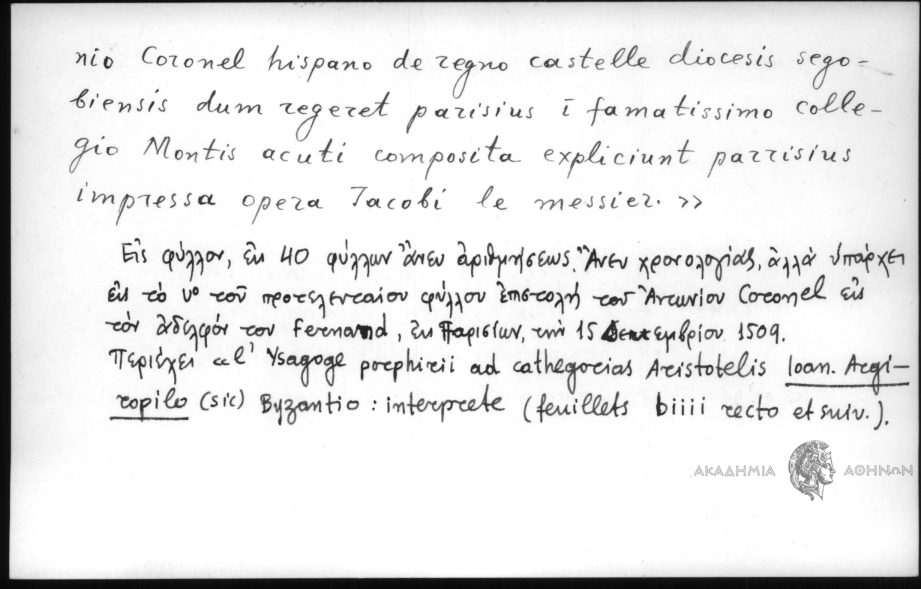 nio Coronel hispano de regno castelle diocesis sego-
biensis dum regeret parisius ī famatissimo colle-
gio Montis acuti composita expliciunt parrisius
impressa opera Jacobi le messier. >>
Εἰς φύλλον, ἐκ 40 φύλλων ἄνευ ἀριθμήσεως. Ἄνευ χρονολογίας, ἀλλὰ ὑπάρχει
εἰς τὸ vº τοῦ προτελευταίου φύλλου ἐπιστολὴ τοῦ Ἀντωνίου Coronel εἰς
τὸν ἀδελφόν του Fernand, ἐκ Παρισίων, τὴν 15 1509.
Περιέχει «l' Ysagoge porphirii ad cathegorias Aristotelis Ioan. Argi-
ropilo (sic) Byzantio : interprete (feuillets biiii recto et suiv.).
ΑΚΑΔΗΜΙΑ ΑΘΗΝΩΝ